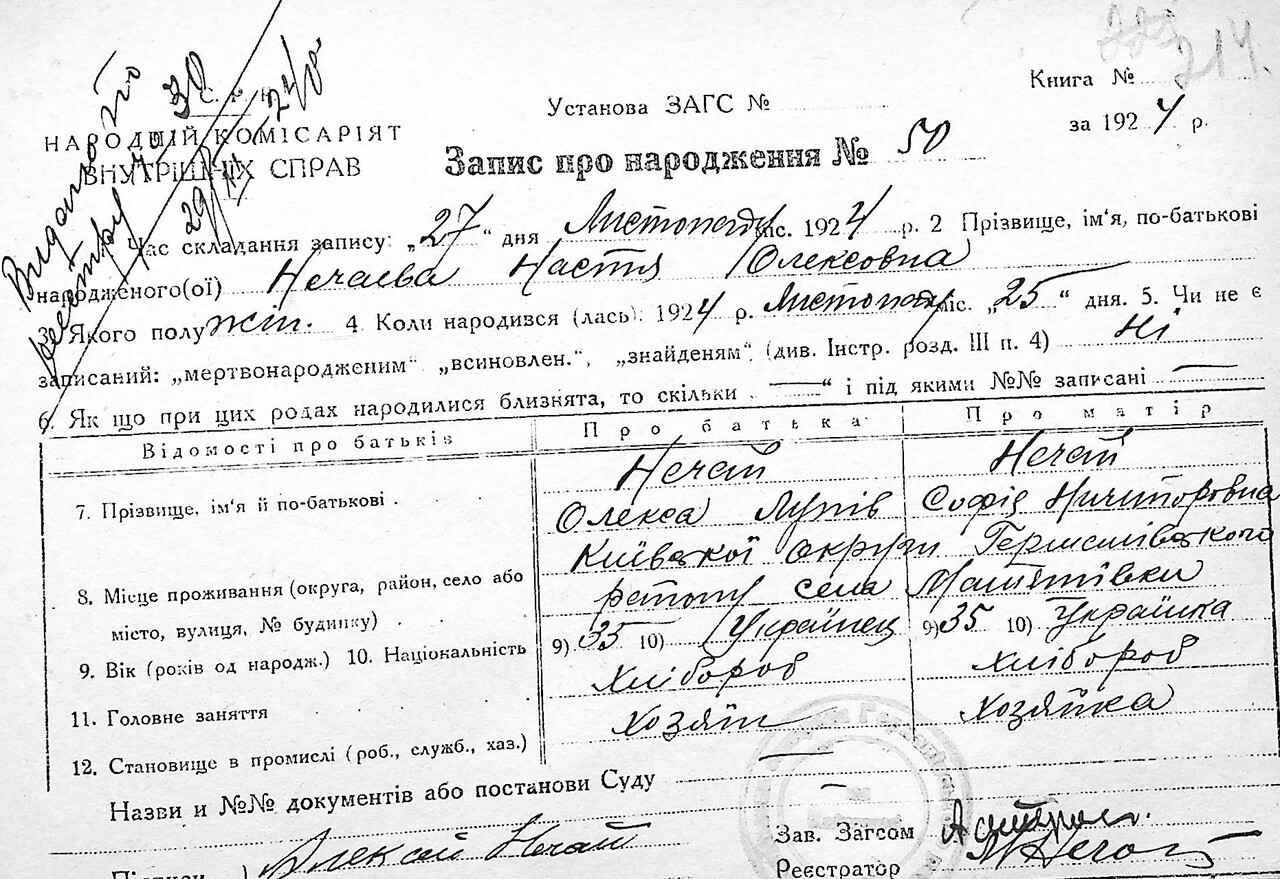 214.
Книга №
Установа ЗАГС №
за 1924 р.
С. Р. Р.
НАРОДНІЙ КОМІСАРІЯТ
ВНУТРІШНІХ СПРАВ
Запис про народження № 50
Видано
29/ 24/
Час складання запису: „27“ дня Листопаду міс. 1924 р. 2 Прізвище, ім'я, по-батькові
народженого(ої) Нечаева Настя Олексовна
3. Якого полу жін. 4. Коли народився (лась): 1924 р. Листопаду міс. „25“ дня. 5. Чи не є
записаний: „мертвонародженим“ „всиновлен.“, „знайденям“ (див. Інстр. розд. III п. 4) Ні
6. Як що при цих родах народилися близнята, то скільки „—“ і під якими №№ записані —
Відомості про батьків Про батька Про матір
7. Прізвище, ім'я й по-батькові . Нечай Нечай
Олекса Софія Ничипоровна
8. Місце проживання (округа, район, село або Київської округи
місто, вулиця, № будинку) . села
9. Вік (років од народж.) 10. Національність 9) 35 10) Українец 9) 35 10) Українка
11. Головне заняття Хлібороб Хлібороб
12. Становище в промислі (роб., служб., хаз.) Хозяін Хозяйка
Назви и №№ документів або постанови Суду —
Зав. Загсом
Алексей Нечай
Реєстратор